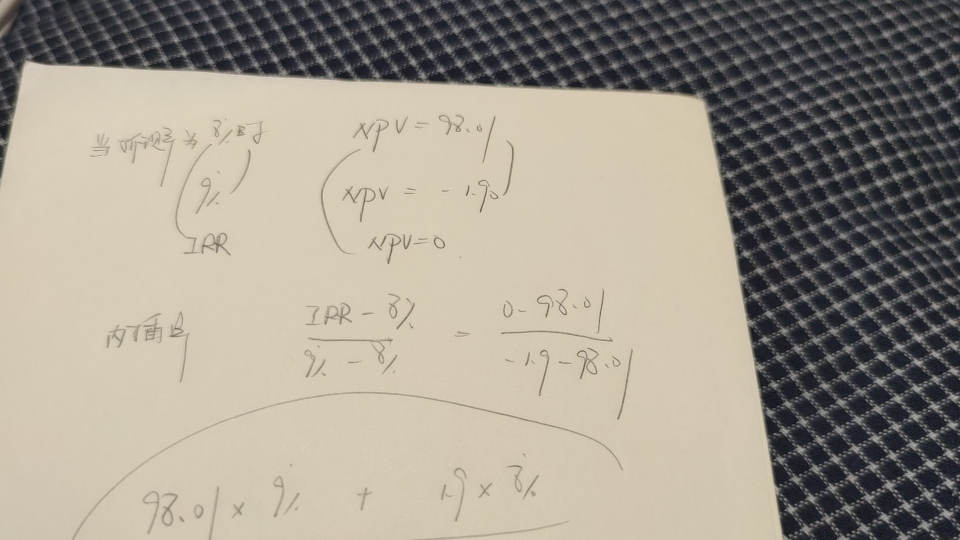 当折现率为 8%时 NPV = 98.01
9% NPV = -1.90
IRR NPV=0
内插法
IRR - 8% / 9% - 8% = 0 - 98.01 / -1.9 - 98.01
98.01 × 9% + 1.9 × 8%